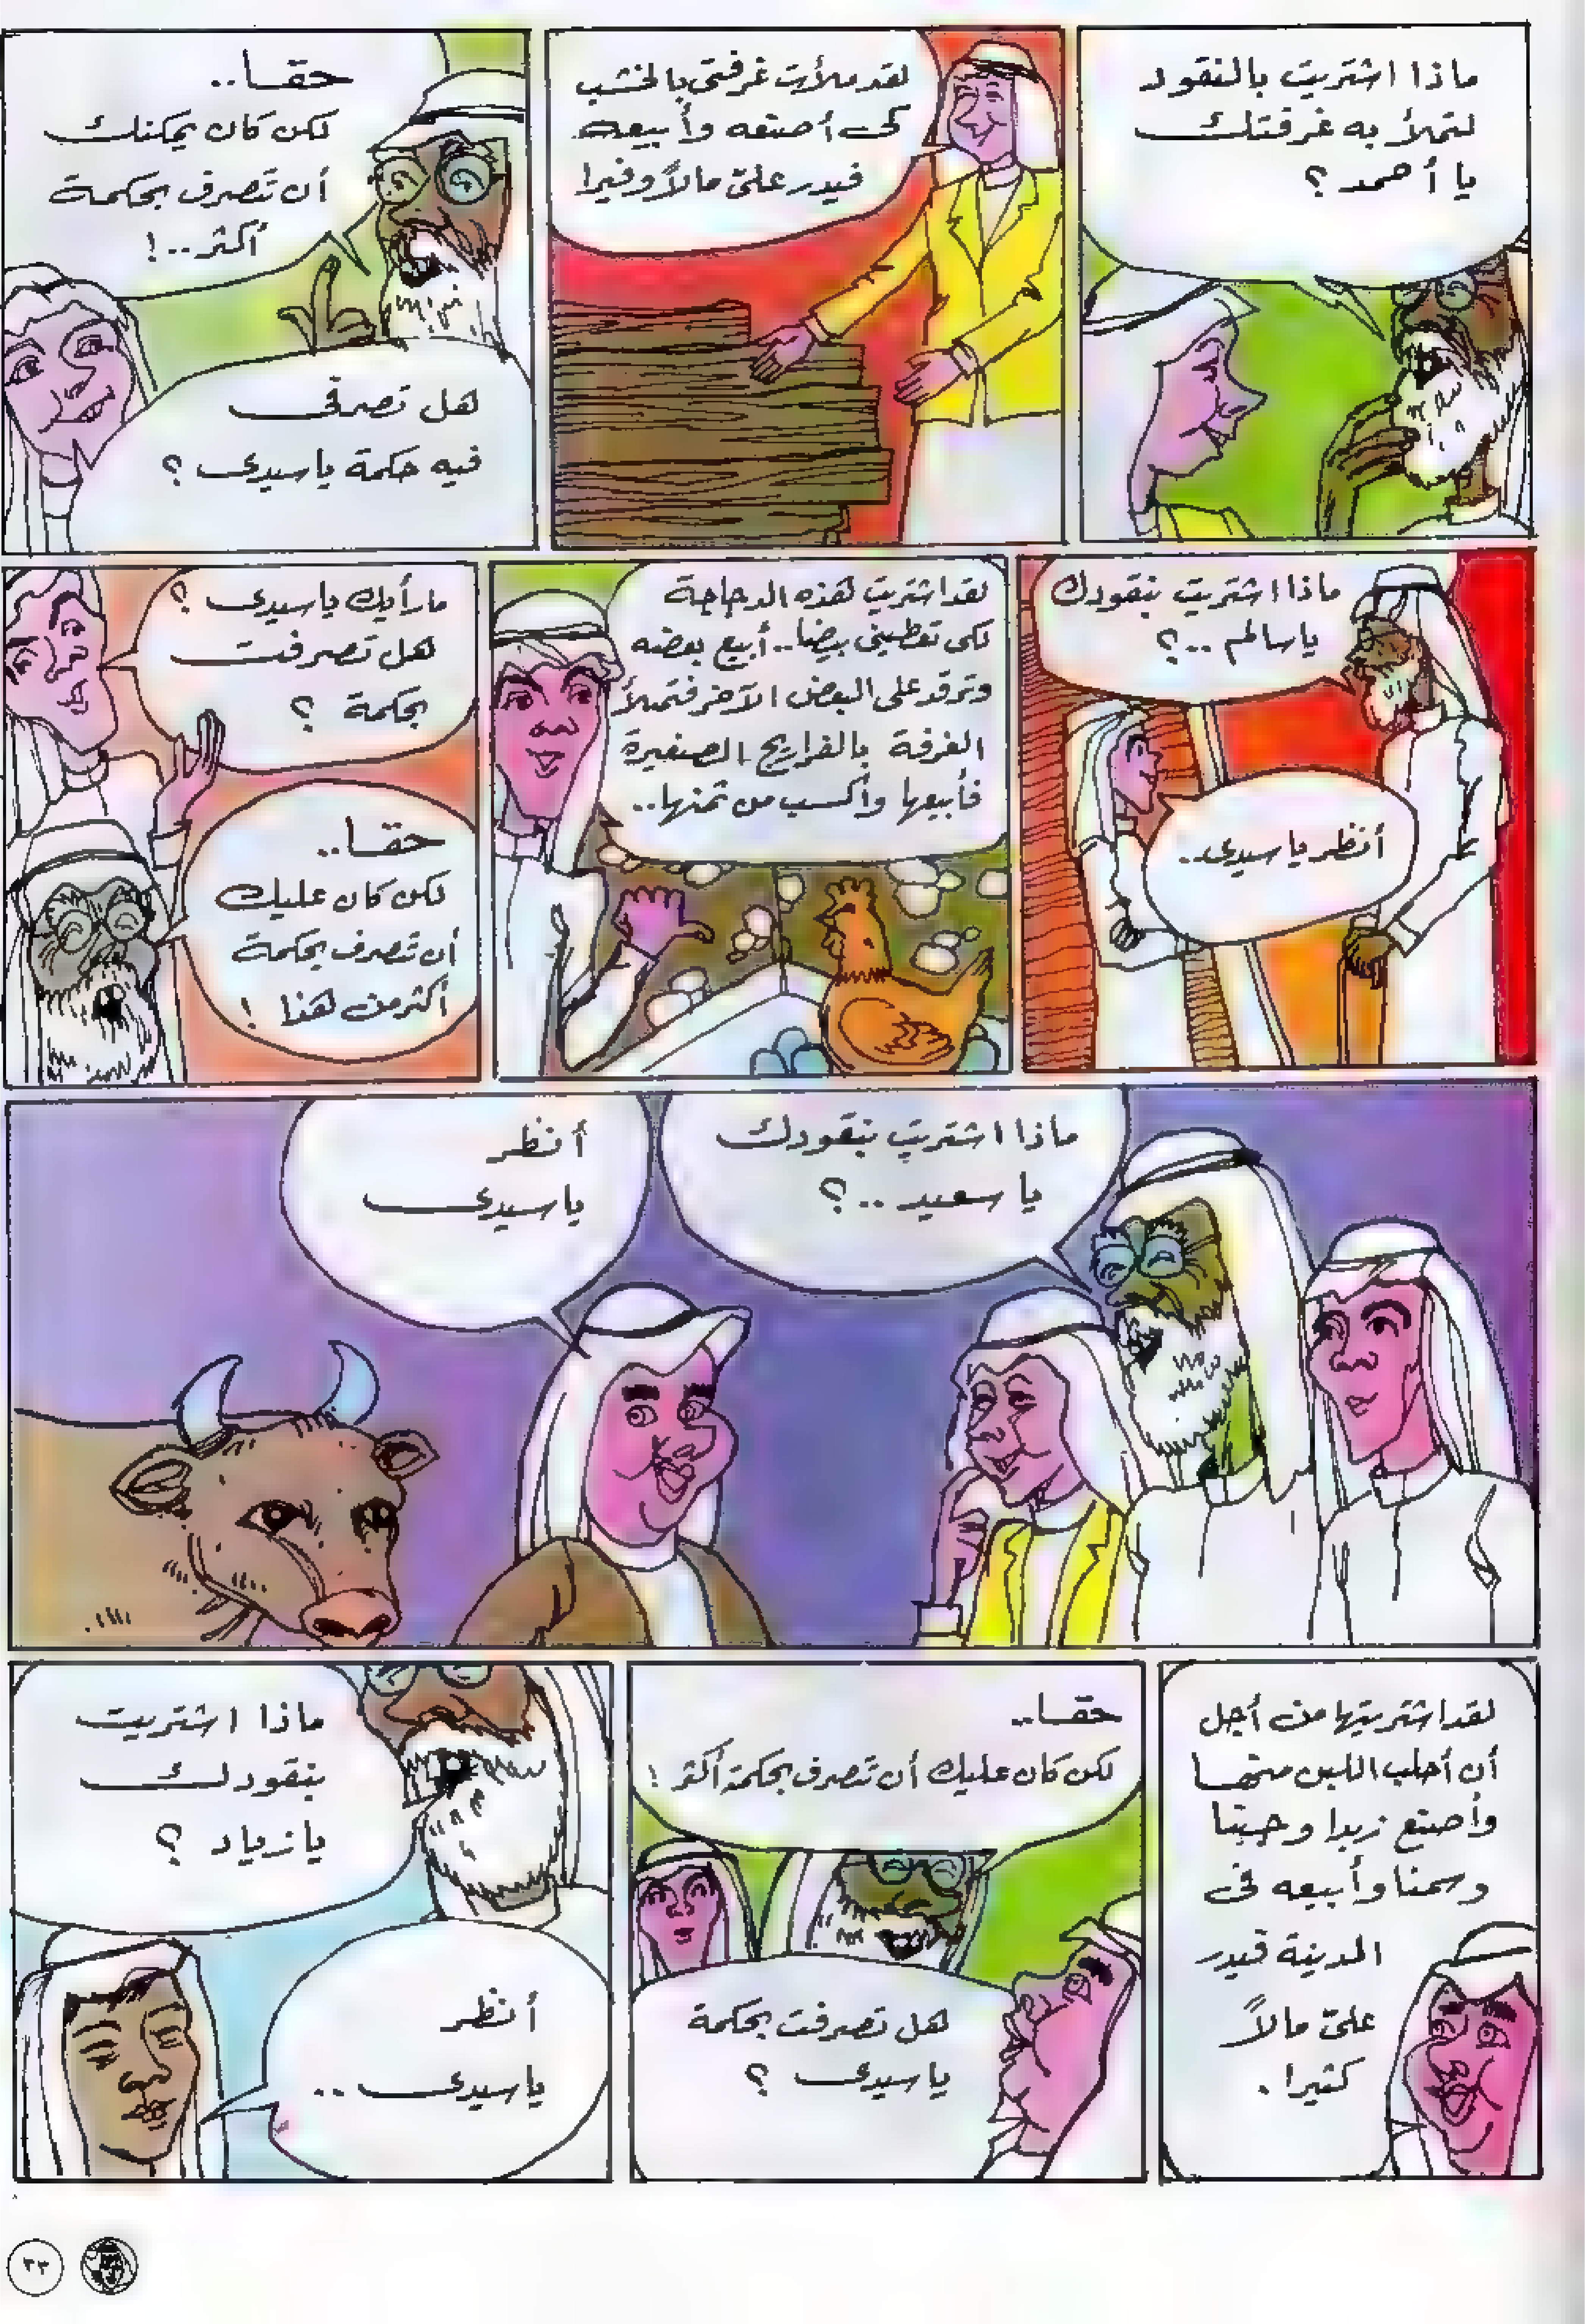 ماذا اشتريت بالنقود
لتملأ به غرفتك
يا أحمد ؟
لقد ملأت غرفتي بالخشب
كى أصنعه وأبيعه
فيدر علىّ مالاً وفيرا
حقا..
لكن كان يمكنك
أن تصرف بحكمة
أكثر..!
هل تصرفى
فيه حكمة ياسيدى ؟
ماذا اشتريت بنقودك
ياسالم ..؟
أنظر ياسيدى..
لقد اشتريت هذه الدجاجة
لكى تعطينى بيضا.. أبيع بعضه
وترقد على البعض الآخر فتملأ
الغرفة بالفراريج الصغيرة
فأبيعها وأكسب من ثمنها..
مارأيك ياسيدى ؟
هل تصرفت
بحكمة ؟
حقا..
لكن كان عليك
أن تصرف بحكمة
أكثر من هذا !
ماذا اشتريت بنقودك
يا سعيد ..؟
أنظر
ياسيدى
لقد اشتريتها من أجل
أن أحلب اللبن منها
وأصنع زبدا وجبنا
وسمنا وأبيعه فى
المدينة فيدر
علىّ مالاً
كثيرا .
حقا..
لكن كان عليك أن تصرف بحكمة أكثر !
هل تصرفت بحكمة
ياسيدى ؟
ماذا اشتريت
بنقودك
يازياد ؟
أنظر
ياسيدى ..
٣٣